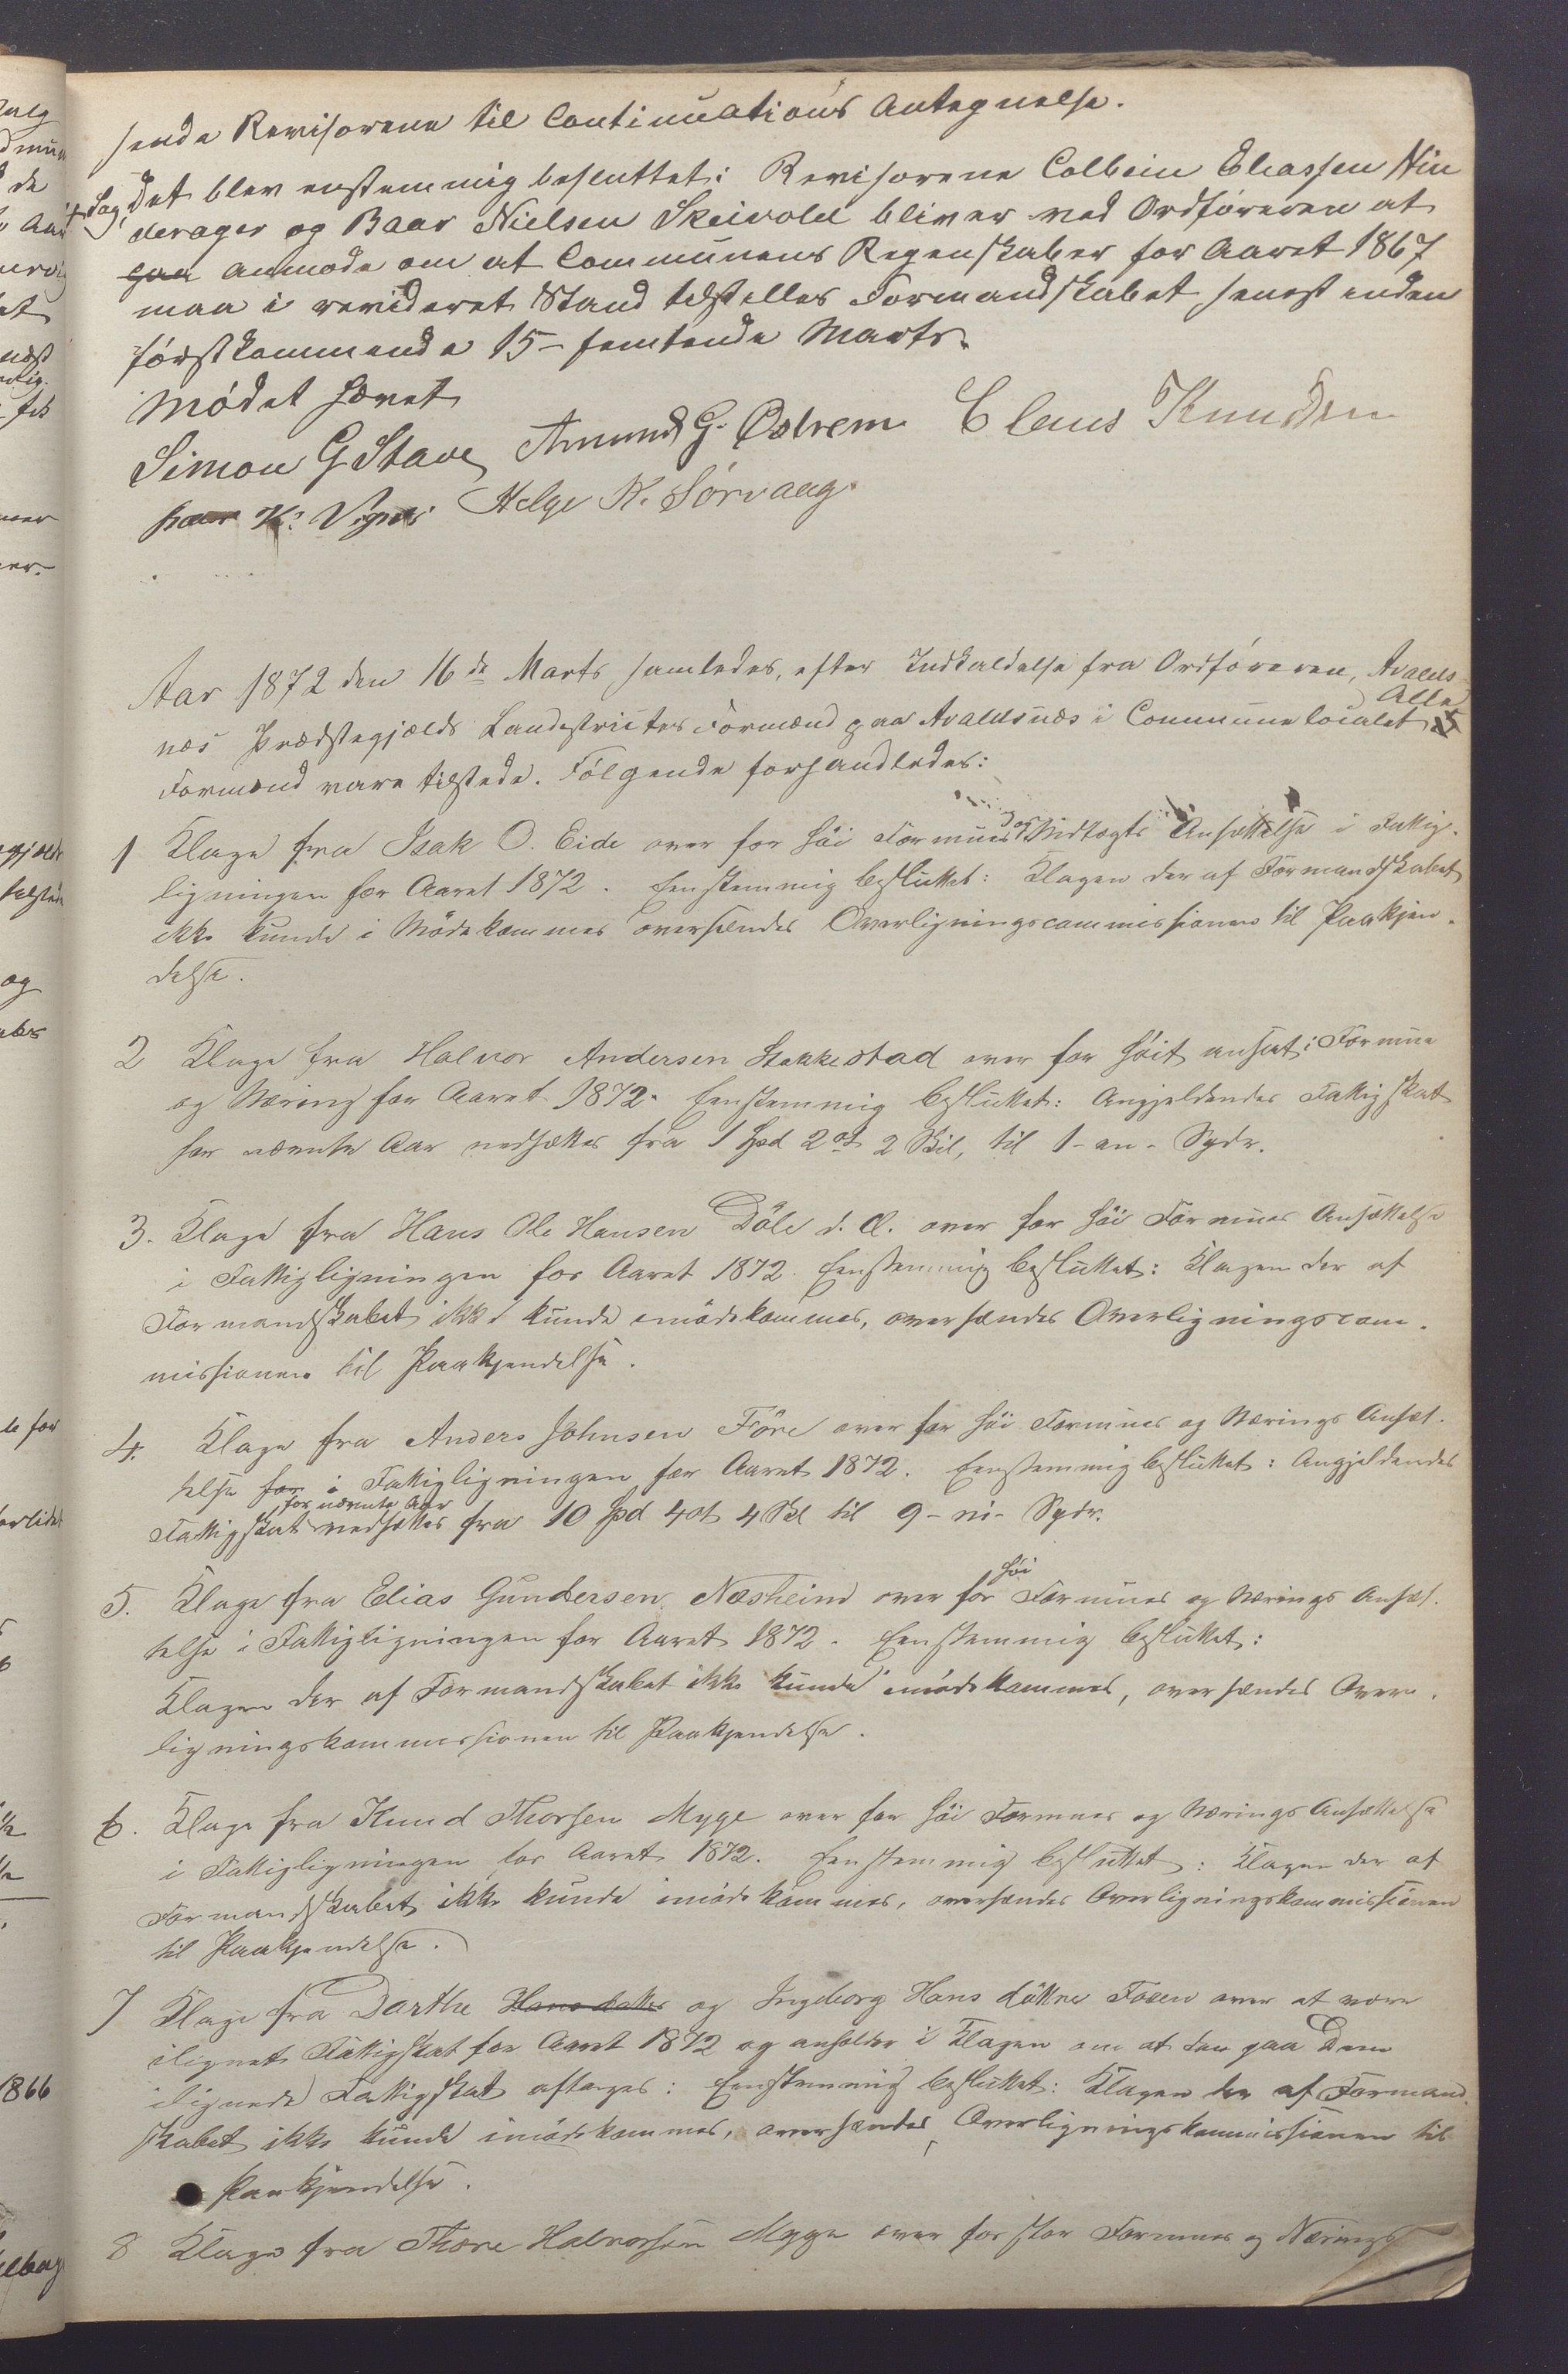 sende Revisorene til Continuations Antegnelse.
Sag Det blev enstemmig besluttet: Revisorene Colbein Eliassen Hin
derager og Baar Nielsen Skeivold bliver ved Ordføreren at
gaa anmode om at Communens Regenskaber for Aaret 1867
maa i revideret Stand tilstilles Formandskabet senest inden
førstkommende 15 - femtende Marts.
Mødet hævet
Simon G Stave Amund G. Østrem Claus Knudsen
K. Helge K. Sørvaag.
Aar 1872 den 16de Marts samledes, efter Indkaldelse fra Ordføreren, Avalds
næs Prædstegjælds Landdistrictes Formænd paa Avaldsnæs i Communelocalet Alle
Formænd vare tilstede. Følgende forhandledes:
1 Klage fra Isak O. Eide over for høi Formues og Indtægts Ansættelse i Fattig-
ligningen for Aaret 1872. Eenstemmig besluttet: Klagen der af Formandskabet
ikke kunde i Mødekommes oversendes Overligningscommissionen til Paakjen-
delse.
2 Klage fra Halvor Andersen Stakkestad over for høit ansat i Formue
og Næring for Aaret 1872. Eenstemmig besluttet: Angjeldendes Fattigskat
for nævnte Aar nedsættes fra 1 Spd 2 ort 2 Skil, til 1 - en - Spdr.
3. Klage fra Hans Ole Hansen Døle d. æ. over for høi Formues Ansættelse
i Fattigligningen for Aaret 1872. Eenstemmig besluttet: Klagen der af
Formandskabet ikke kunde imødekommes, oversendes Overligningscom-
missionen til Paakjendelse.
4. Klage fra Anders Johnsen Føre over for høi Formues og Nærings Ansæt-
telse for i Fattigligningen for Aaret 1872. Eenstemmig besluttet: Angjeldendes
Fattigskat for nævnte Aar nedsættes fra 10 Spd 4 ort 4 Skl til 9 - ni - Spdr.
5. Klage fra Elias Gundersen Næsheim over for høi Formues og Nærings Ansæt-
telse i Fattigligningen for Aaret 1872. Eenstemmig besluttet:
Klagen der af Formandskabet ikke kunde imødekommes, oversendes Over-
ligningskommissionen til Paakjendelse.
6. Klage fra Knud Thorsen Myge over for høi Formues og Nærings Ansættelse
i Fattigligningen for Aaret 1872. Eenstemmig besluttet: Klagen der af
Formandskabet ikke kunde imødekommes, oversendes Overligningskommissionen
til Paakjendelse.
7 Klage fra Dorthe Hansdatter og Ingeborg Hans døttre Fosen over at være
ilignet Fattigskat for Aaret 1872 og anholder i Klagen om at den paa Dem
ilignede Fattigskat aftages: Eenstemmig besluttet: Klagen der af Formand-
skabet ikke kunde imødekommes, oversendes Overligningskommissionen til
Paakjendelse.
8 Klage fra Thore Halvorsen Myge over for stor Formues og Nærings